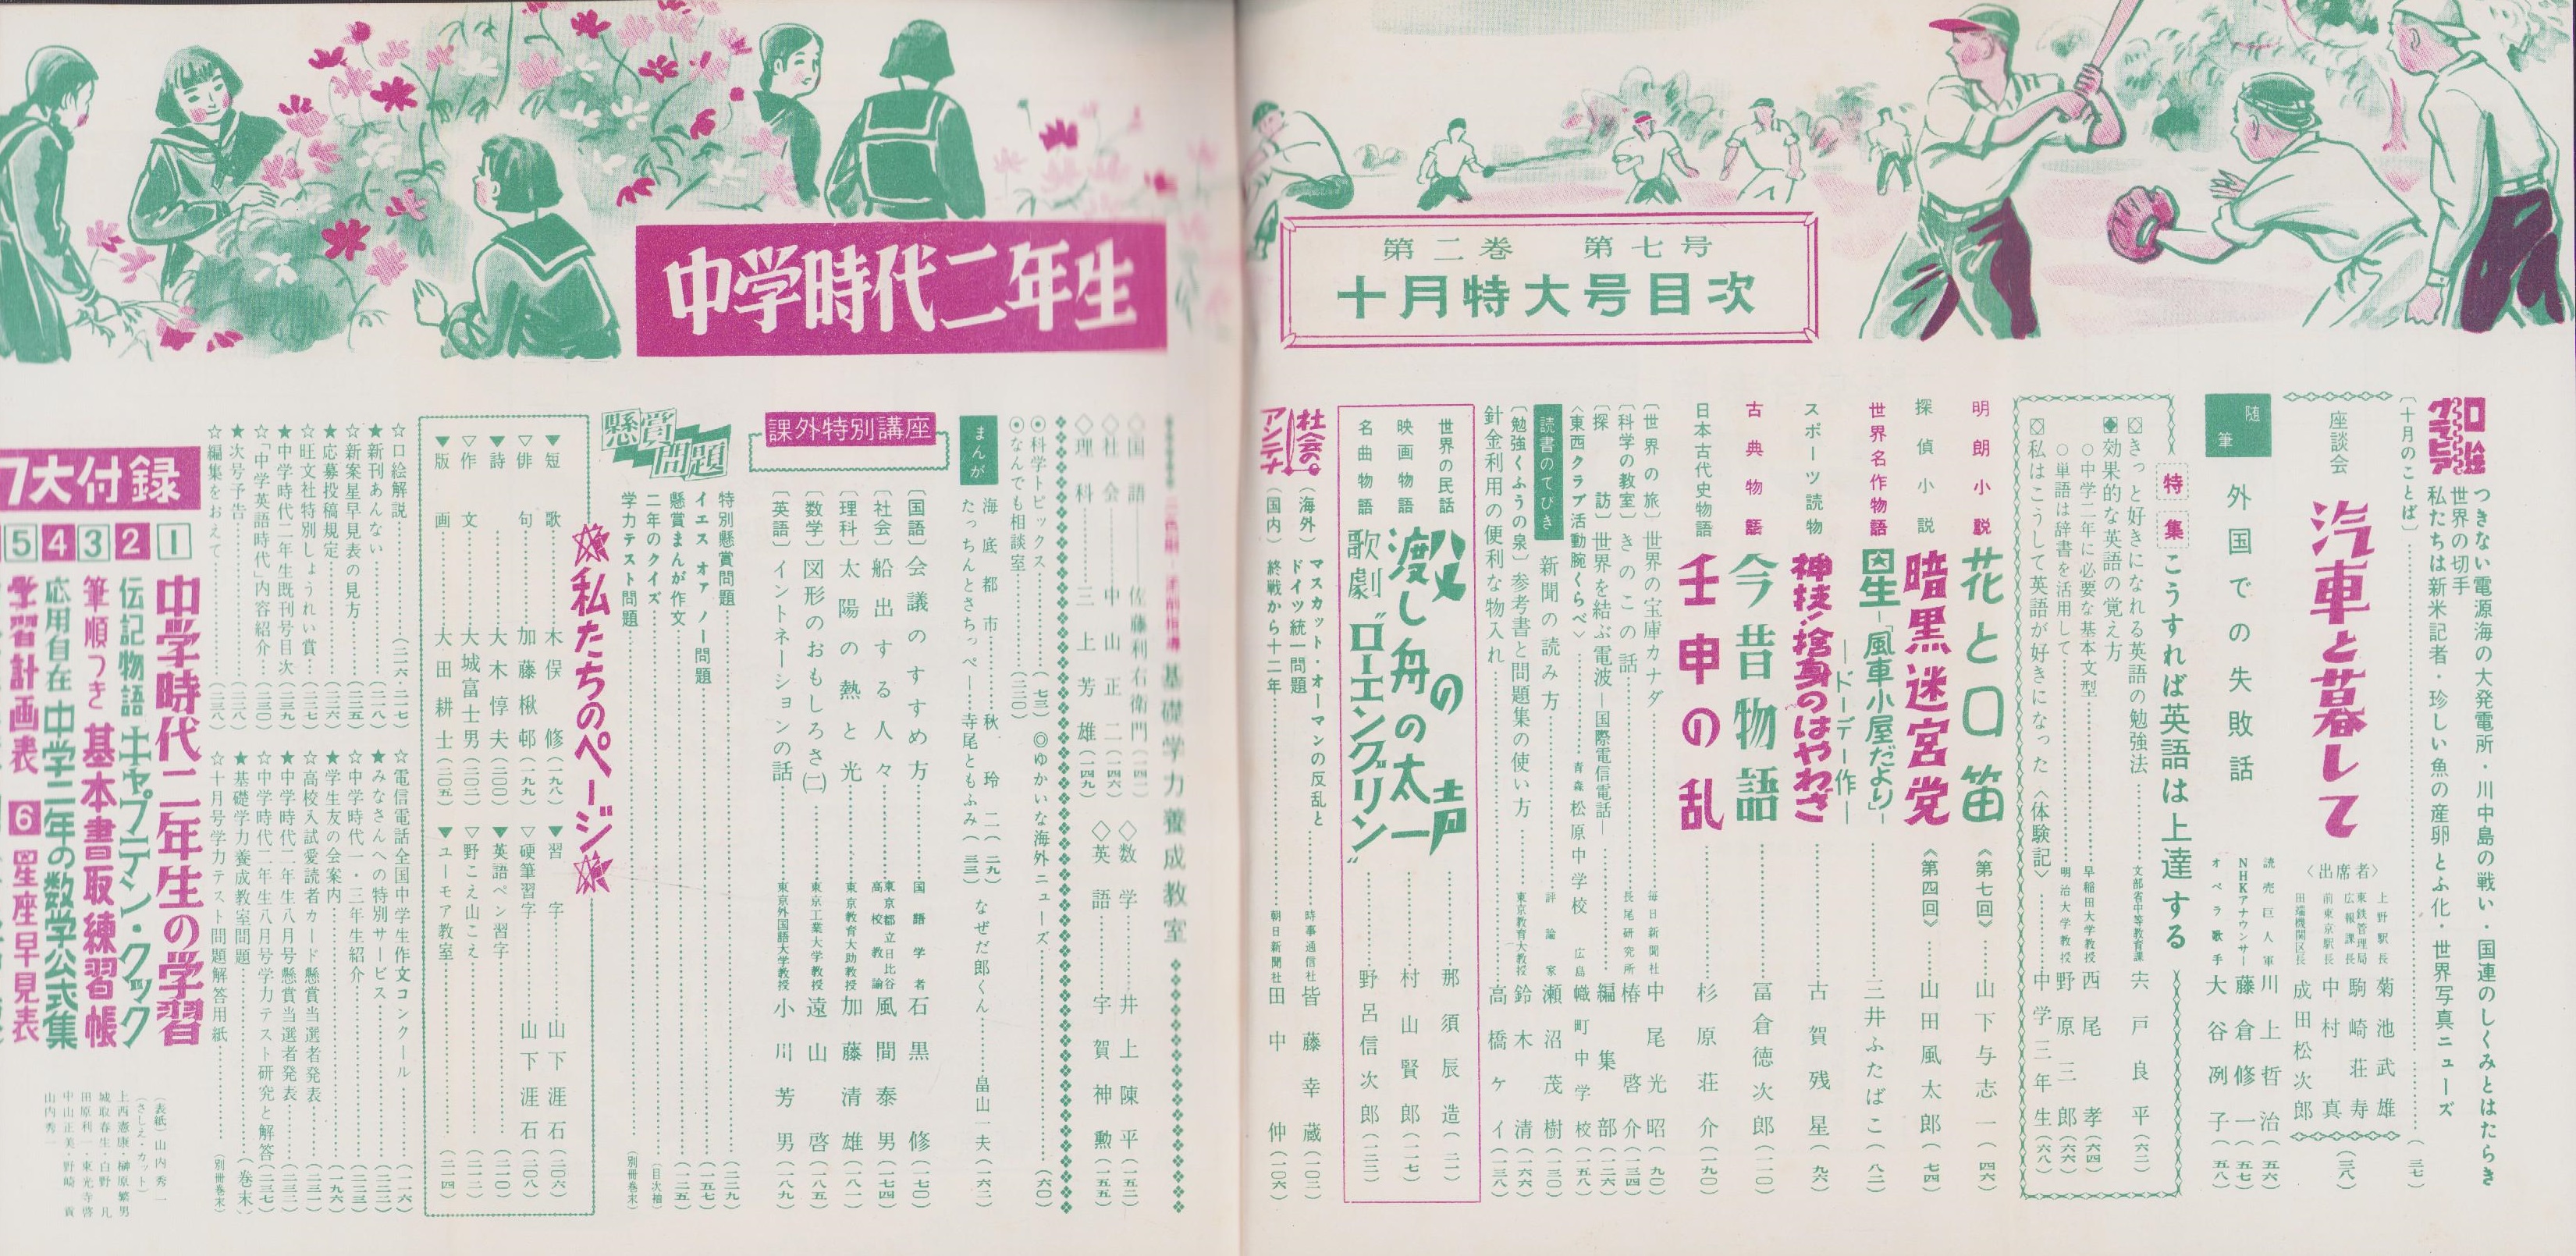 第二巻　第七号
十月特大号目次
口絵
グラビア
つきない電源海の大発電所・川中島の戦い・国連のしくみとはたらき
世界の切手
私たちは新米記者・珍しい魚の産卵とふ化・世界写真ニューズ
〔十月のことば〕……(三七)
座談会
汽車と暮して
〈出席者〉
上野駅長 菊池武雄
東鉄管理局広報課長 駒崎荘寿
前東京駅長 中村真
田端機関区長 成田松次郎
(三八)
随筆
外国での失敗話
読売巨人軍 川上哲治(五六)
NHKアナウンサー 藤倉修一(五七)
オペラ歌手 大谷冽子(五八)
特集 こうすれば英語は上達する
◇きっと好きになれる英語の勉強法……文部省中等教育課 宍戸良平(六二)
◆効果的な英語の覚え方
○中学二年に必要な基本文型……早稲田大学教授 西尾孝(六四)
○単語は辞書を活用して……明治大学教授 野原三郎(六六)
◇私はこうして英語が好きになった〈体験記〉……中学三年生(六八)
明朗小説 花と口笛《第七回》……山下与志一(四六)
探偵小説 暗黒迷宮党《第四回》……山田風太郎(七四)
世界名作物語 星―「風車小屋だより」―
―ドーデー作― 三井ふたばこ(八二)
スポーツ読物 神技!捨身のはやわざ……古賀残星(九六)
古典物語 今昔物語……冨倉徳次郎(一一〇)
日本古代史物語 壬申の乱……杉原荘介(一九〇)
〔世界の旅〕世界の宝庫カナダ……毎日新聞社 中尾光昭(九〇)
〔科学の教室〕きのこの話……長尾研究所 椿啓介(一三四)
〔探訪〕世界を結ぶ電波―国際電信電話―……編集部(一二六)
〈東西クラブ活動腕くらべ〉……青森 松原中学校 広島 幟町中学校(一五八)
読書のてびき 新聞の読み方……評論家 瀬沼茂樹(一三〇)
〔勉強くふうの泉〕参考書と問題集の使い方……東京教育大教授 鈴木清(一六六)
針金利用の便利な物入れ……高橋ケイ(一三八)
世界の民話 殿の声……那須辰造(二一)
映画物語 渡し舟の太一……村山賢郎(一一七)
名曲物語 歌劇“ローエングリン”……野呂信次郎(一三二)
社会のアンテナ
(海外) マスカット・オーマンの反乱と
ドイツ統一問題……時事通信社 皆藤幸蔵(一〇二)
(国内) 終戦から十二年……朝日新聞社 田中仲(一〇六)
中学時代二年生
基礎学力養成教室
◇国語……佐藤利右衛門(一四二)
◇社会……中山正二(一四六)
◇理科……三上芳雄(一四九)
◇数学……井上陳平(一五二)
◇英語……宇賀神勲(一五五)
◉科学トピックス……(七三)
◎ゆかいな海外ニューズ……(六〇)
◉なんでも相談室……(二二〇)
まんが
海底都市……秋玲二(二九)
たっちんとさちっぺー……寺尾ともふみ(三三)
なぜだ郎くん……畠山一夫(一六二)
課外特別講座
〔国語〕会議のすすめ方……国語学者 石黒修(一七〇)
〔社会〕船出する人々……東京都立日比谷高校教諭 風間泰男(一七四)
〔理科〕太陽の熱と光……東京教育大助教授 加藤清雄(一八一)
〔数学〕図形のおもしろさ(二)……東京工業大学教授 遠山啓(一八五)
〔英語〕イントネーションの話……東京外国語大学教授 小川芳男(一八九)
懸賞問題
特別懸賞問題……(二二九)
イエス オア ノー問題……(一五七)
懸賞まんが作文……(一二五)
二年のクイズ……(目次袖)
学力テスト問題……(別冊巻末)
私たちのページ
▼短歌……木俣修(一九八)
▽俳句……加藤楸邨(一九九)
▼詩……大木惇夫(二〇〇)
▽作文……大城富士男(二〇二)
▼版画……大田耕士(二〇五)
▼習字……山下涯石(二〇六)
▽硬筆習字……山下涯石(二〇八)
▼英語ペン習字……(二一〇)
▽野こえ山こえ……(二一二)
▼ユーモア教室……(二一四)
☆口絵解説……(二六・二七)
★新刊あんない……(二一八)
☆新案星早見表の見方……(二二五)
★応募投稿規定……(二二六)
☆旺文社特別しょうれい賞……(二二七)
★中学時代二年生既刊号目次……(二三九)
☆「中学英語時代」内容紹介……(二三〇)
★次号予告……(二二八)
☆編集をおえて……(二三八)
☆電信電話全国中学生作文コンクール……(一一六)
★みなさんへの特別サービス……(二二二)
☆中学時代一・三年生紹介……(二二三)
★学生友の会案内……(一九六)
☆高校入試愛読者カード懸賞当選者発表……(二三一)
★中学時代二年生八月号懸賞当選者発表……(二三二)
☆中学時代二年生八月号学力テスト研究と解答(二三七)
★基礎学力養成教室問題……(巻末)
☆十月号学力テスト問題解答用紙……(別冊巻末)
7大付録
1 中学時代二年生の学習
2 伝記物語 キャプテン・クック
3 筆順つき 基本書取練習帳
4 応用自在 中学二年の数学公式集
5 学習計画表
6 星座早見表
(表紙)山内秀一
(さしえ・カット)
上西憲康・榊原繁男
城取春生・白野凡
田原利一・東光寺啓
中山正美・野崎貢
山内秀一